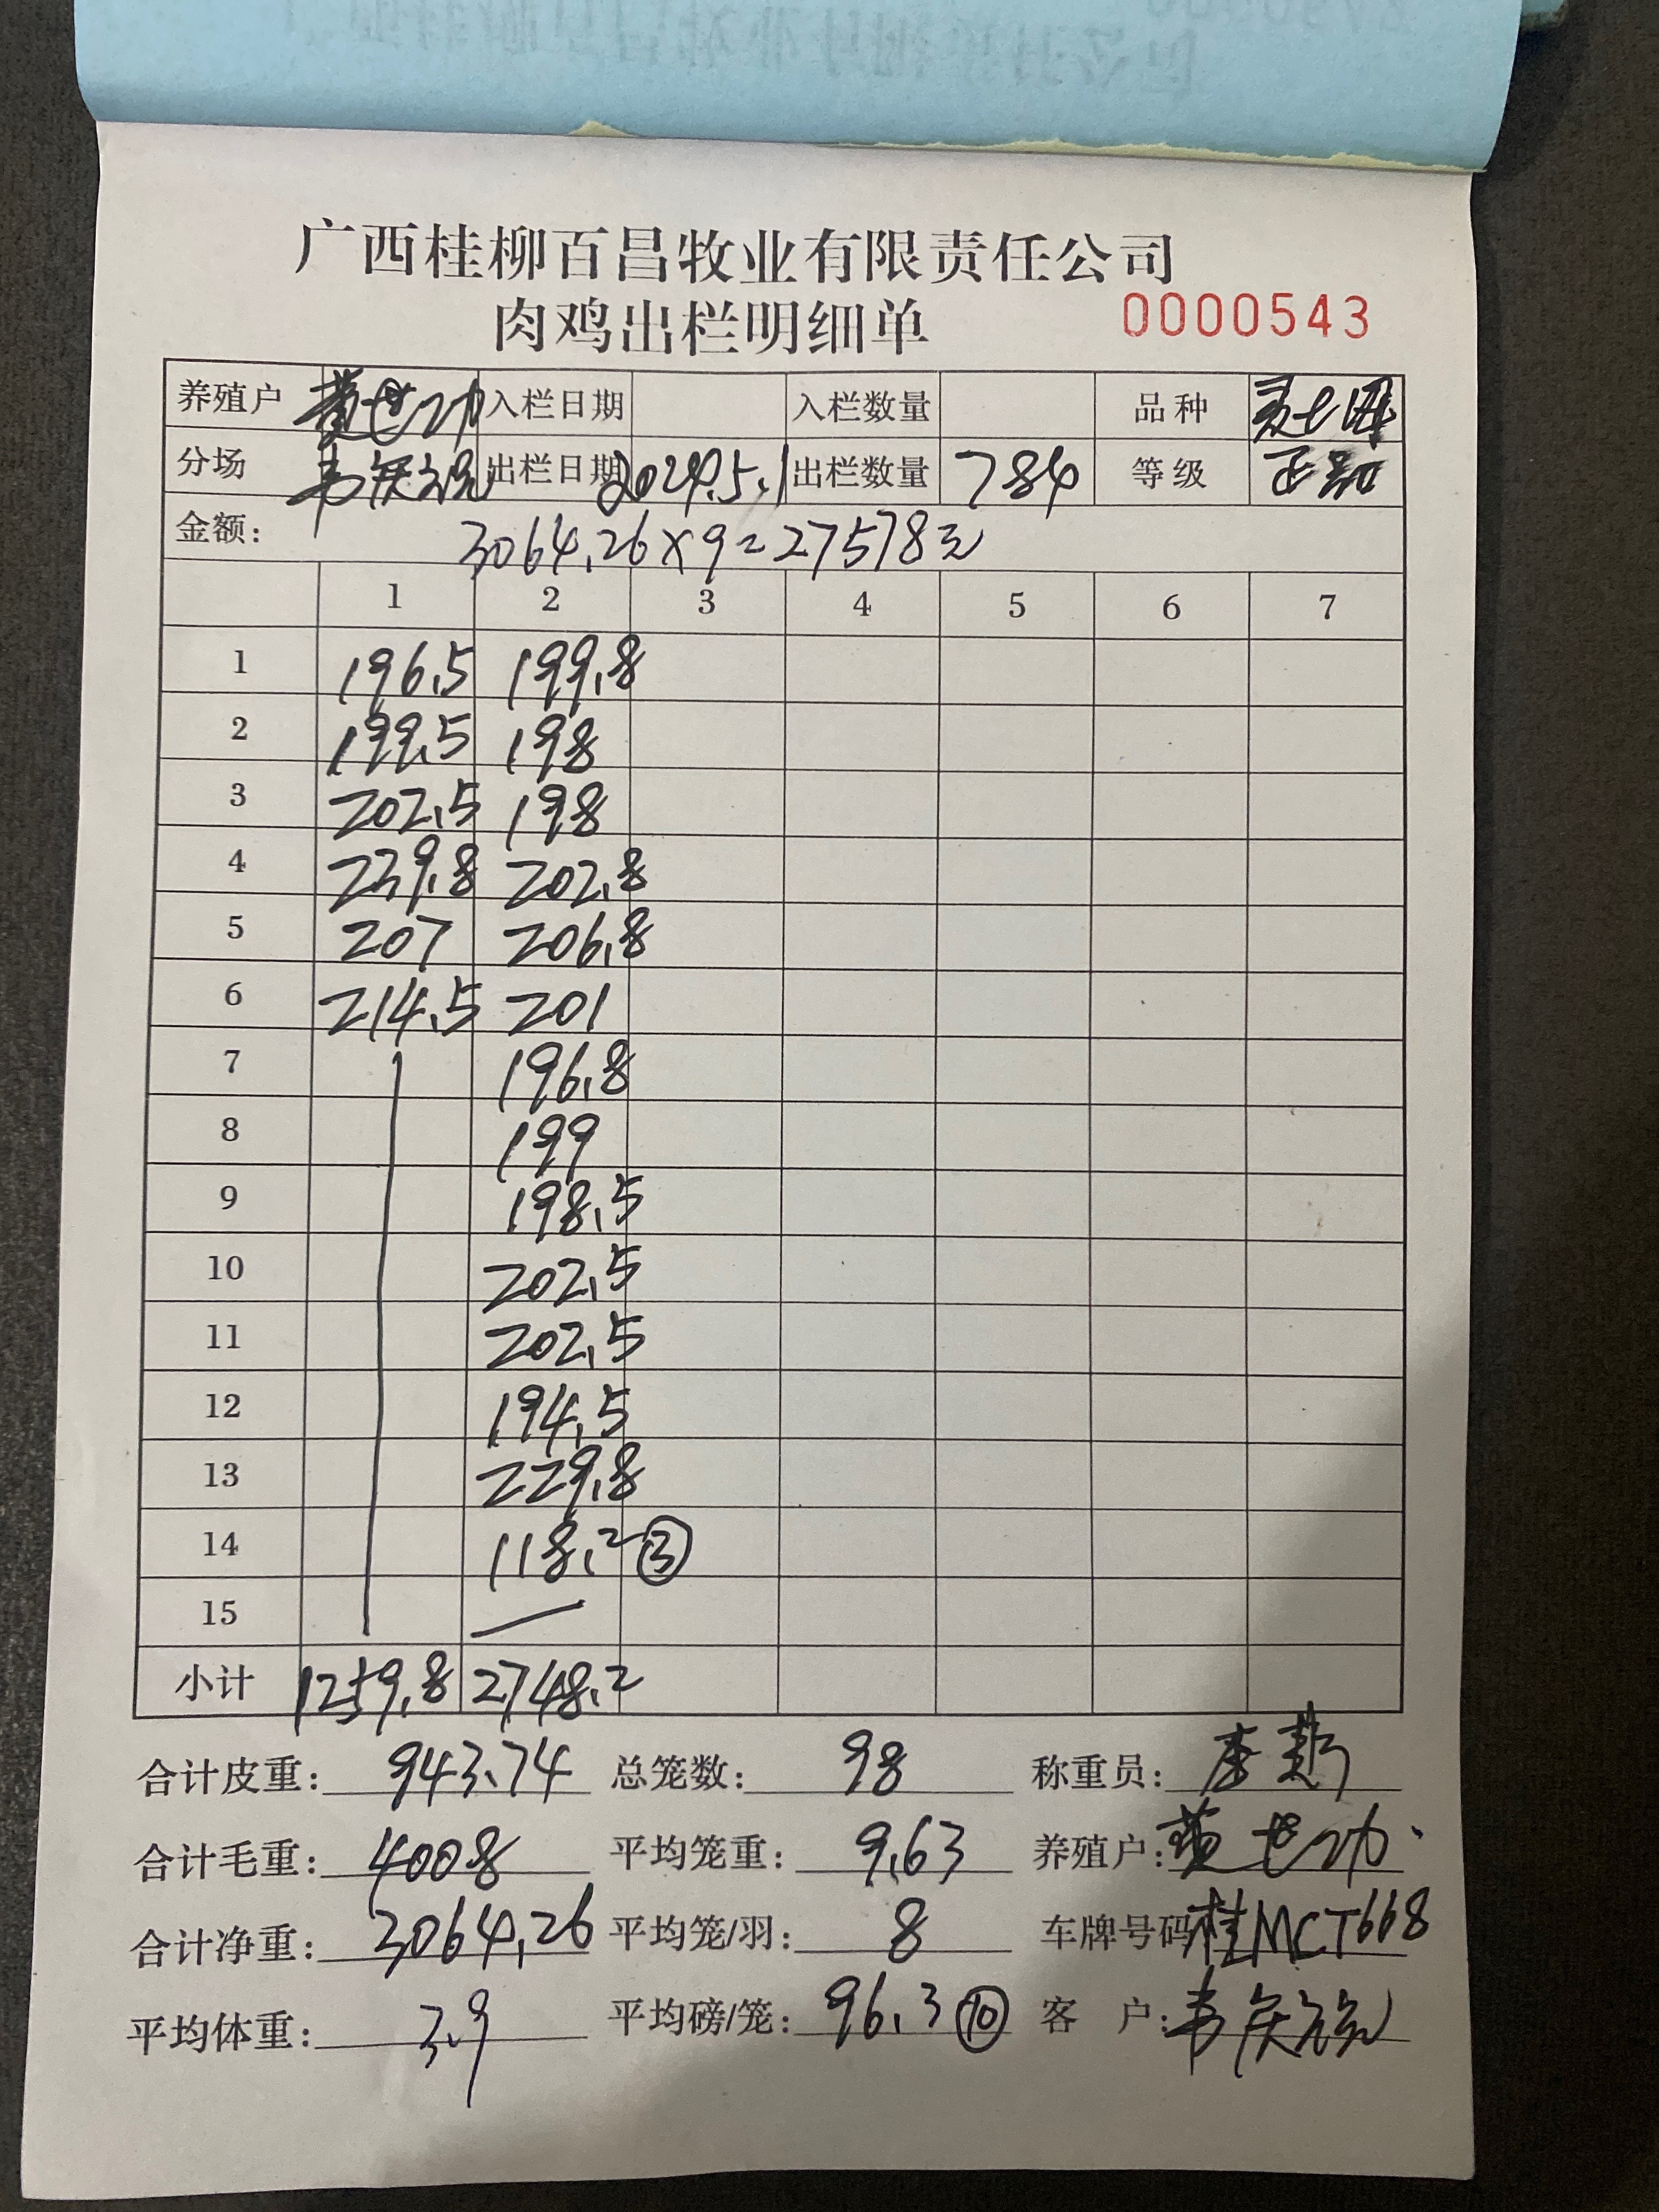 广西桂柳百昌牧业有限责任公司
肉鸡出栏明细单 0000543
养殖户 黄世功 入栏日期 入栏数量 品种
分场 出栏日期 2024.5.1 出栏数量 784 等级 正品
金额: 3064.26×9=27578元
1 2 3 4 5 6 7
1 196.5 199.8
2 199.5 198
3 202.5 198
4 239.8 202.8
5 207 206.8
6 214.5 201
7 196.8
8 199
9 198.5
10 202.5
11 202.5
12 194.5
13 229.8
14 118.2 ③
15
小计 1259.8 2748.2
合计皮重: 943.74 总笼数: 98 称重员: 李
合计毛重: 4008 平均笼重: 9.63 养殖户: 黄世功
合计净重: 3064.26 平均笼/羽: 8 车牌号码 桂MCT668
平均体重: 3.9 平均磅/笼: 96.3 ⑩ 客 户: 韦